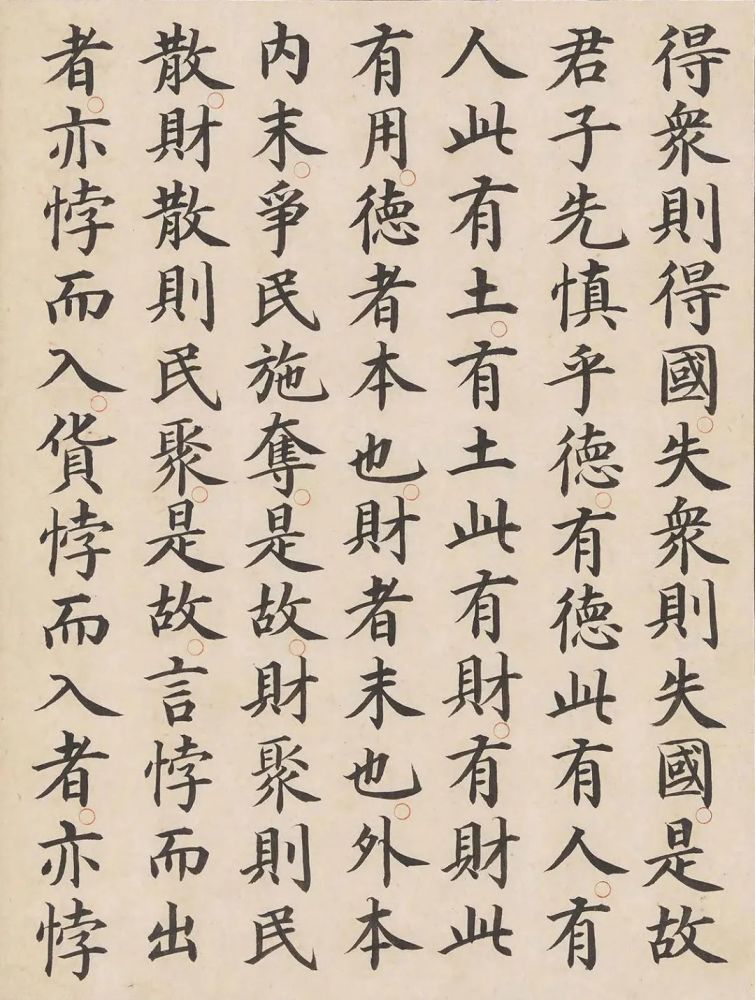 得衆則得國失衆則失國是故
君子先慎乎徳有徳此有人有
人此有土有土此有財有財此
有用徳者本也財者末也外本
内末爭民施奪是故財聚則民
散財散則民聚是故言悖而出
者亦悖而入貨悖而入者亦悖